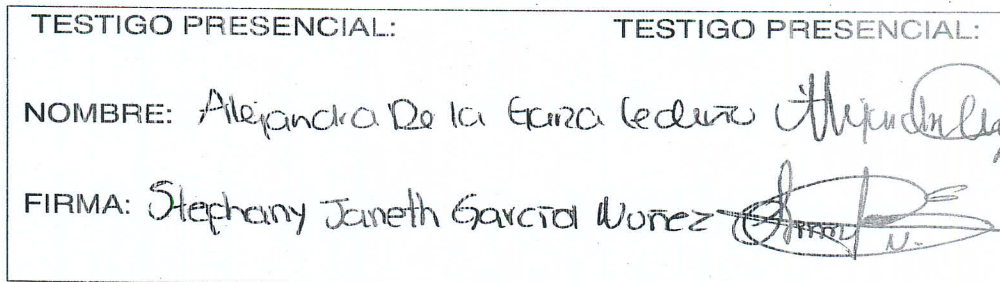 TESTIGO PRESENCIAL: TESTIGO PRESENCIAL:
NOMBRE: Alejandra De la Garza Cedeño
FIRMA: Stephany Janeth García Nuñez